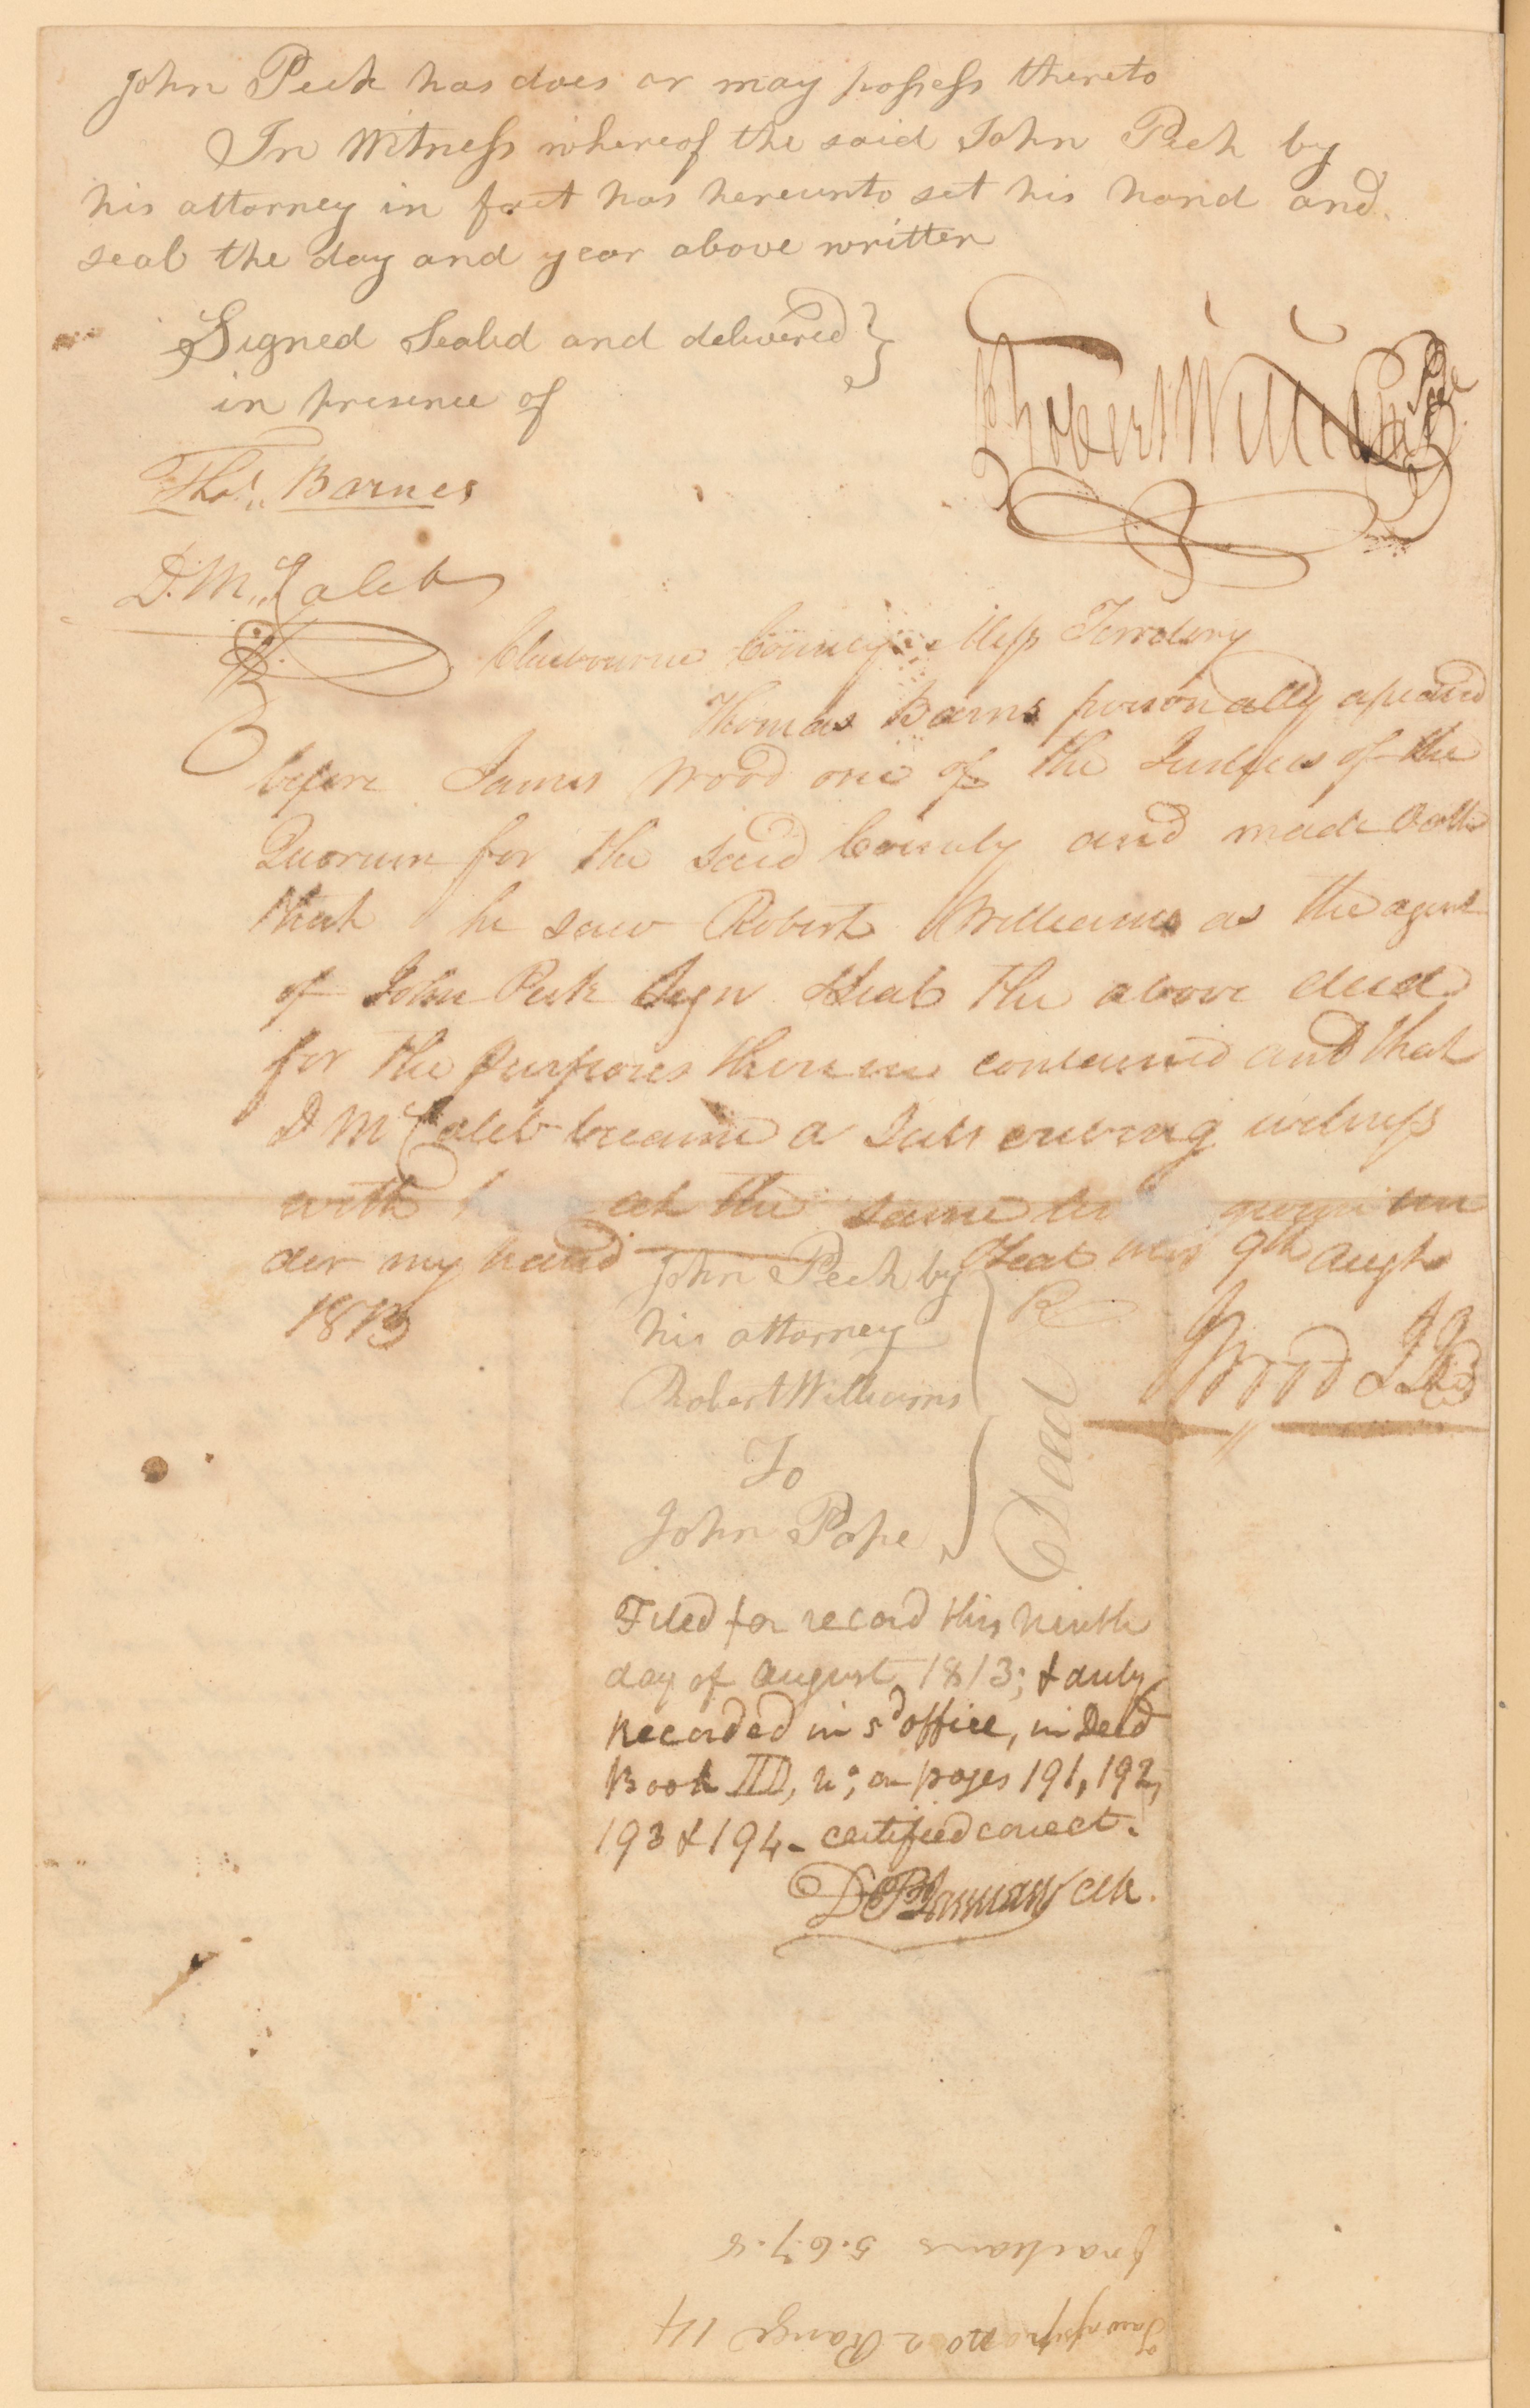 John Peck has does or may possess thereto
In Witness whereof the said John Peck by
his attorney in fact has hereunto set his hand and
seal the day and year above written
Signed Sealed and delivered }
in presence of
Robert Williams
Thos. Barnes
D. McCaleb
Claibourne County Miss Territory
Thomas Barns personally apeared
before James Wood one of the Justices of the
Quorum for the said County and made Oath
that he saw Robert Williams as the agent
of John Peck Sign & Seal the above deed
for the purposes therein contained and that
D McCaleb became a Subscribing witness
with at the same given un
der my hand & Seal this 9th Augt
1813
J Wood
John Peck by
his attorney
Robert Williams
To
John Pope
Deed
Filed for record this ninth
day of august 1813; & duly
Recorded in sd office, in Deed
Book on pages 191, 192,
193 & 194 - certified corect.
Clk.
Township no 2 Range 14
fractions 5.6.7.8